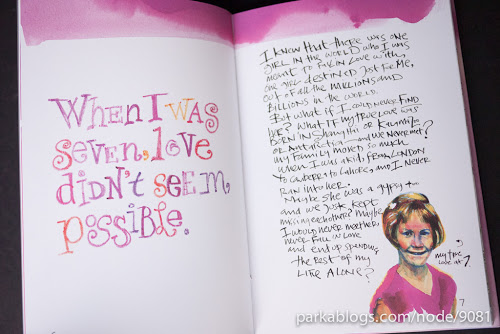 When I was
seven, love
didn't seem
possible.
I know that there was one
girl in the world who I was
meant to fall in love with,
one girl destined just for me,
out of all the millions and
billions in the world.
But what if I could never find
her? What if my true love was
born in Shanghai or
or Antarctica and we never met?
My family moved so much
when I was a kid, from London
to Canberra to Lahore, and I never
ran into her.
Maybe she was a gypsy too
and we just kept
missing each other. Maybe
I would never meet her,
never fall in love
and end up spending
the rest of my
life alone?
my true
love at 7.
7
parkablogs.com/node/9081